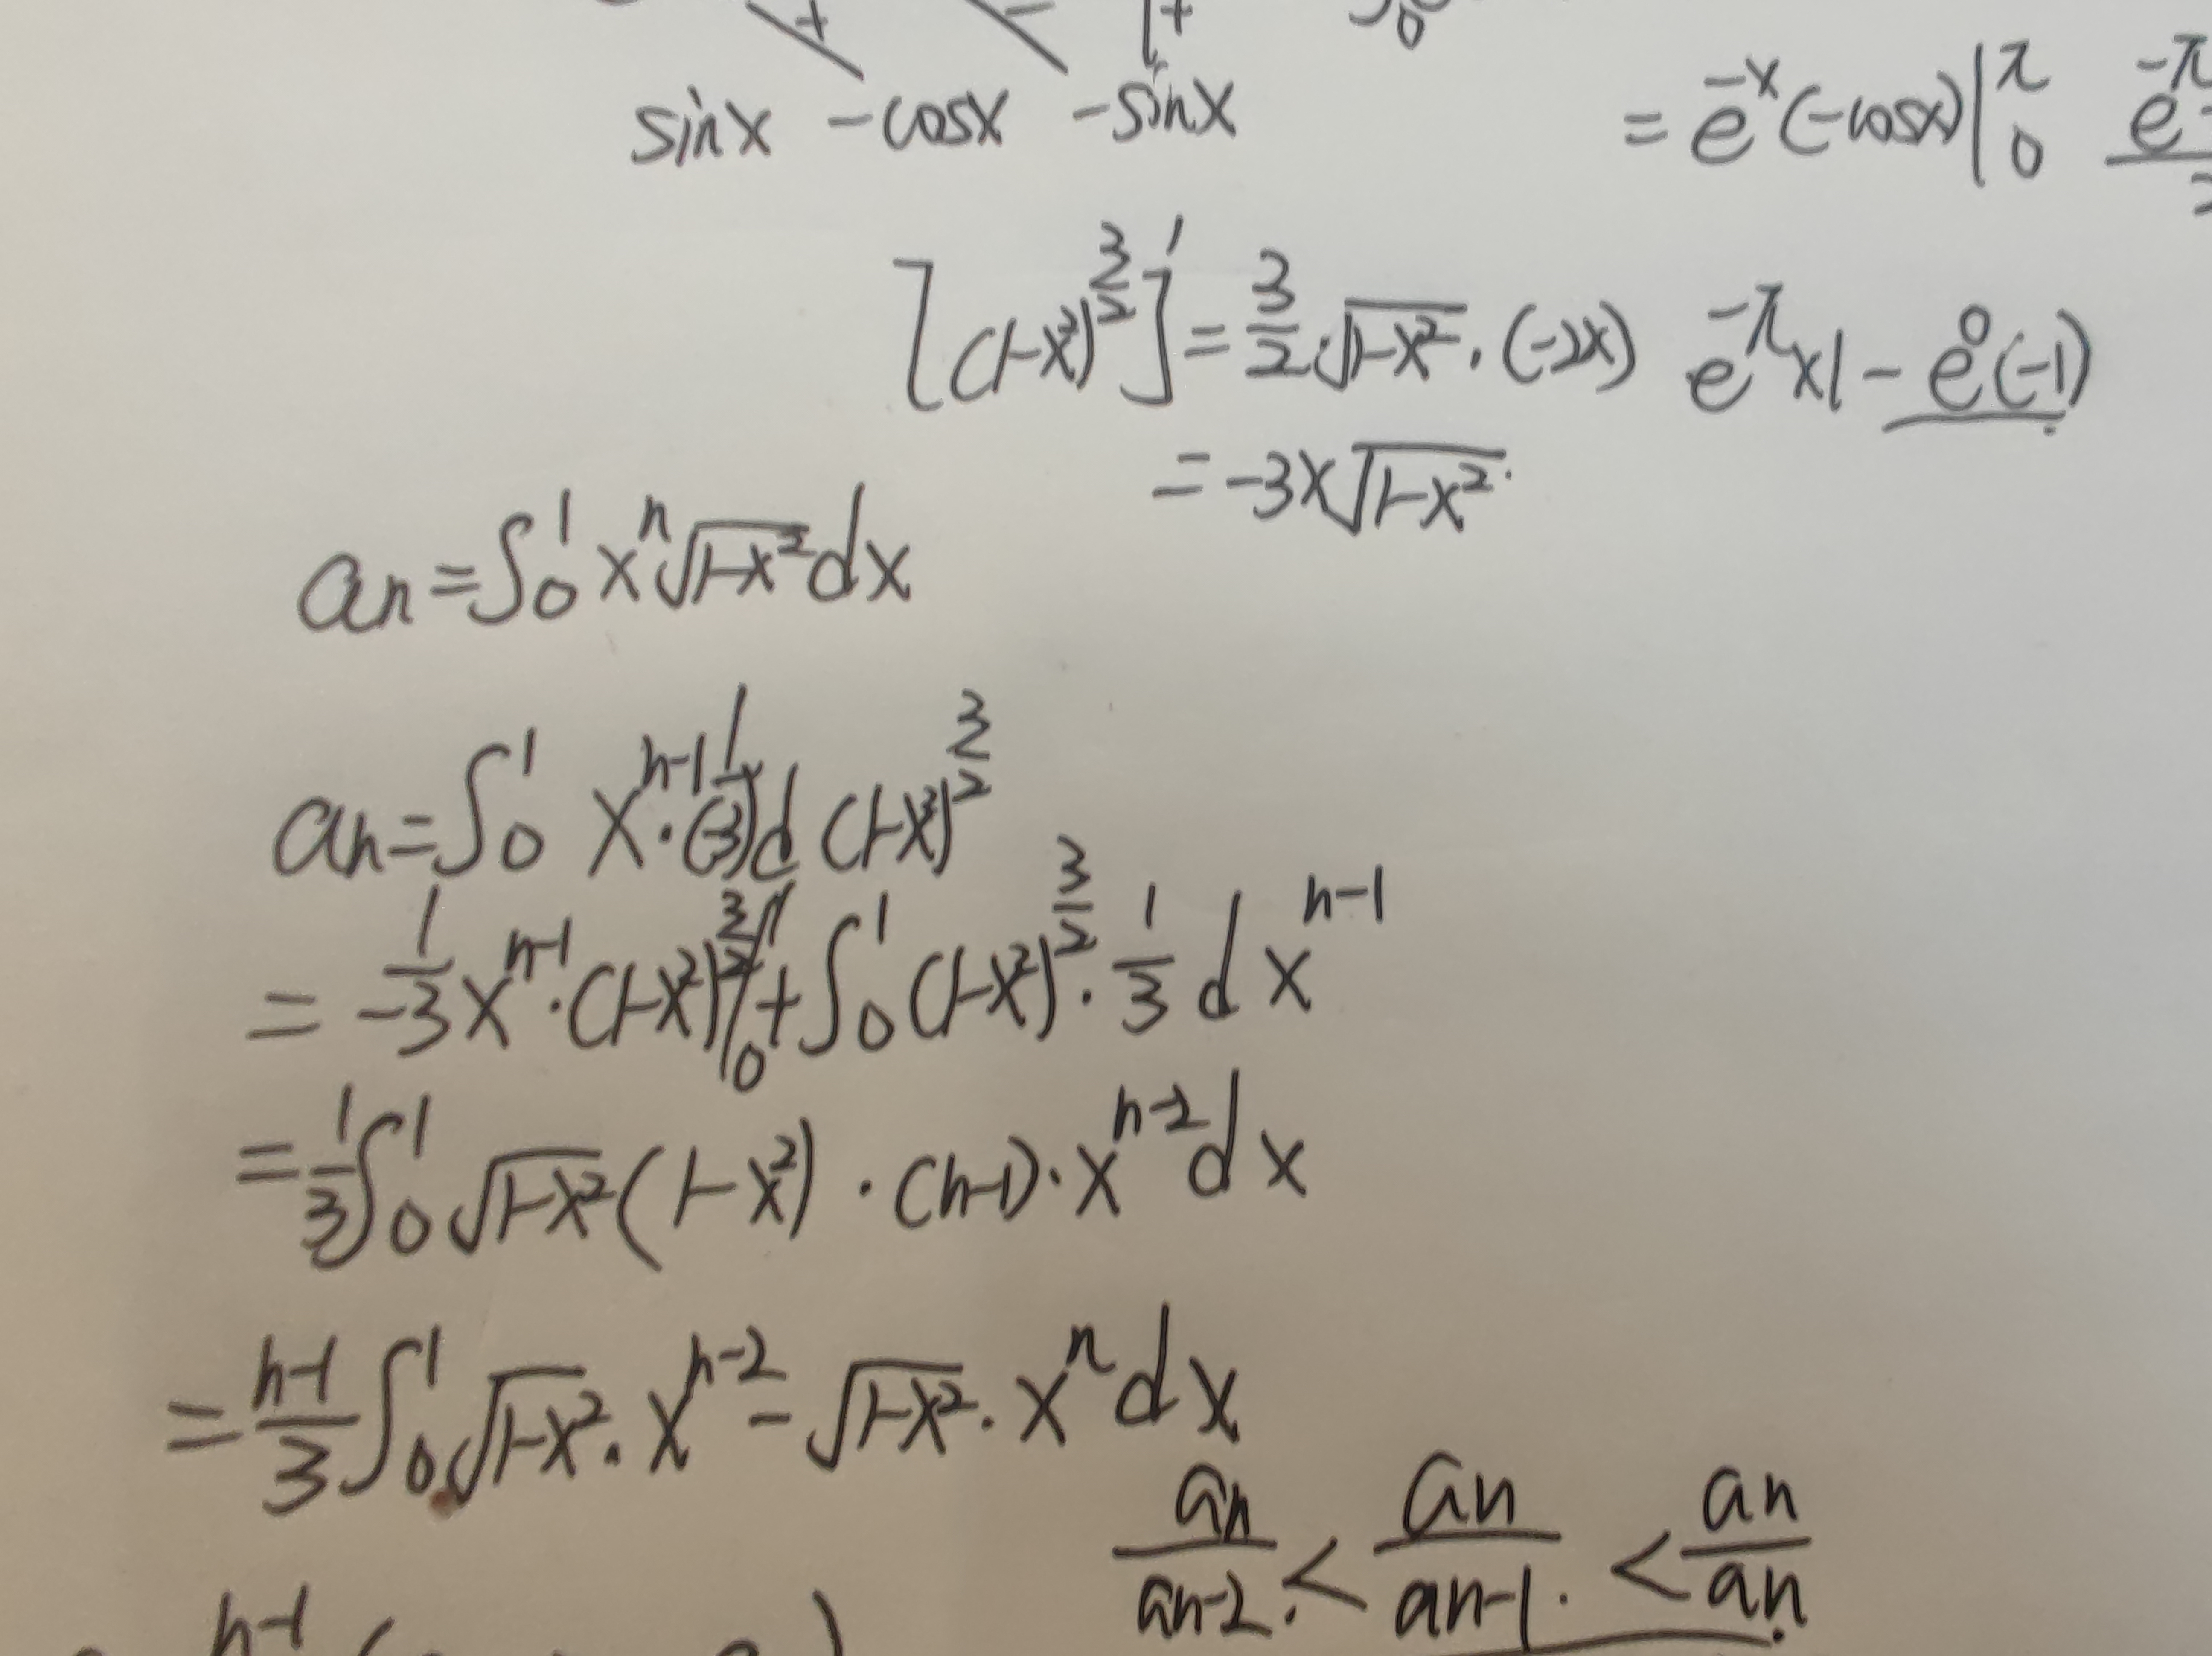 + − + 0
sinx −cosx −sinx
= e^{-x}(−cosx)|_0^π e^{-π}
[(1−x²)^{3/2}]' = 3/2·√(1−x²)·(−2x)
e^{-π}×1 − e^0(−1)
= −3x√(1−x²)
an = ∫_0^1 x^n √(1−x²) dx
an = ∫_0^1 x^{n−1}·1/(−3) d(1−x²)^{3/2}
= 1/−3 x^{n−1}·(1−x²)^{3/2}|_0^1 + ∫_0^1 (1−x²)^{3/2}·1/3 dx^{n−1}
= 1/3 ∫_0^1 √(1−x²)(1−x²)·(n−1)·x^{n−2} dx
= n−1/3 ∫_0^1 √(1−x²)·x^{n−2} − √(1−x²)·x^n dx
an/an−2 < an/an−1 < an/an
n−1 ( )